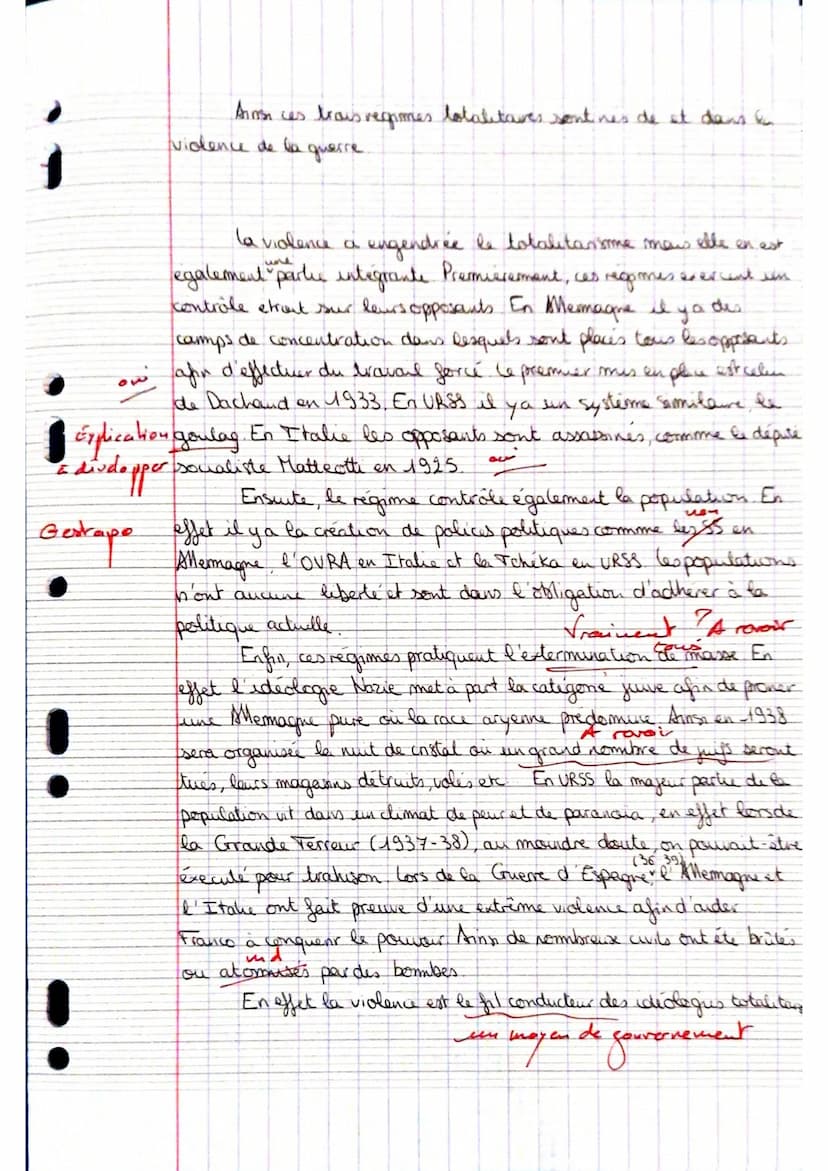 Ainsi ces trois régimes totalitaires sont nés de et dans la
violence de la guerre.
La violence a engendrée le totalitarisme mais elle en est
une
également partie intégrante. Premièrement, ces régimes exercent un
contrôle etroit sur leurs opposants. En Allemagne il y a des
camps de concentration dans lesquels sont placés tous les opposants
oui
afin d'effectuer du travail forcé. Le premier mis en place est celui
de Dachaud en 1933. En URSS il y a un système similaire, le
Explication goulag. En Italie les opposants sont assassinés, comme le député
à développer socialiste Matteotti en 1925. oui
Ensuite, le régime contrôle également la population. En
non
Gestapo effet il y a la création de polices politiques comme les SS en
Allemagne, l'OVRA en Italie et la Tchéka en URSS. Les populations
n'ont aucune liberté et sont dans l'obligation d'adhérer à la
politique actuelle.
Vraiment ? A revoir
tous
Enfin, ces régimes pratiquent l'extermination de masse. En
effet l'idéologie Nazie met à part la catégorie juive afin de proner
une Allemagne pure où la race aryenne prédomine. Ainsi en 1938
A revoir
sera organisée la nuit de cristal où un grand nombre de juifs seront
tués, leurs magasins détruits, volés etc. En URSS la majeur partie de la
population vit dans un climat de peur et de paranoia, en effet lors de
la Grande Terreur (1937-38), au moindre doute, on pouvait-être
(36 39)
éxecuté pour trahison. Lors de la Guerre d'Espagne, l'Allemagne et
l'Italie ont fait preuve d'une extrême violence afin d'aider
Franco à conquerir le pouvoir. Ainsi de nombreux civils ont été brûlés
md
ou atomisés par des bombes.
En effet la violence est le fil conducteur des idéologies totalitair
un moyen de gouvernement